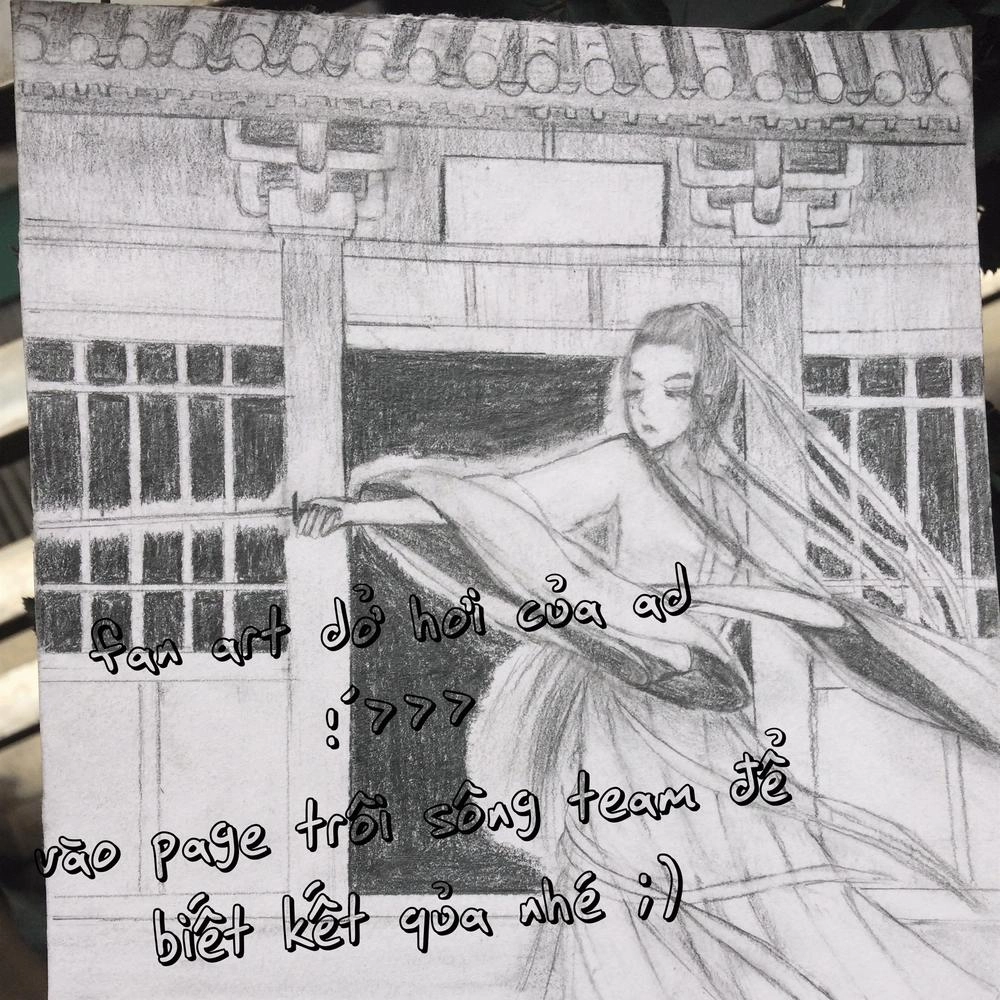 fan art dở hơi của ad
:´>>>
vào page trôi sông team để
biết kết qủa nhé ;)